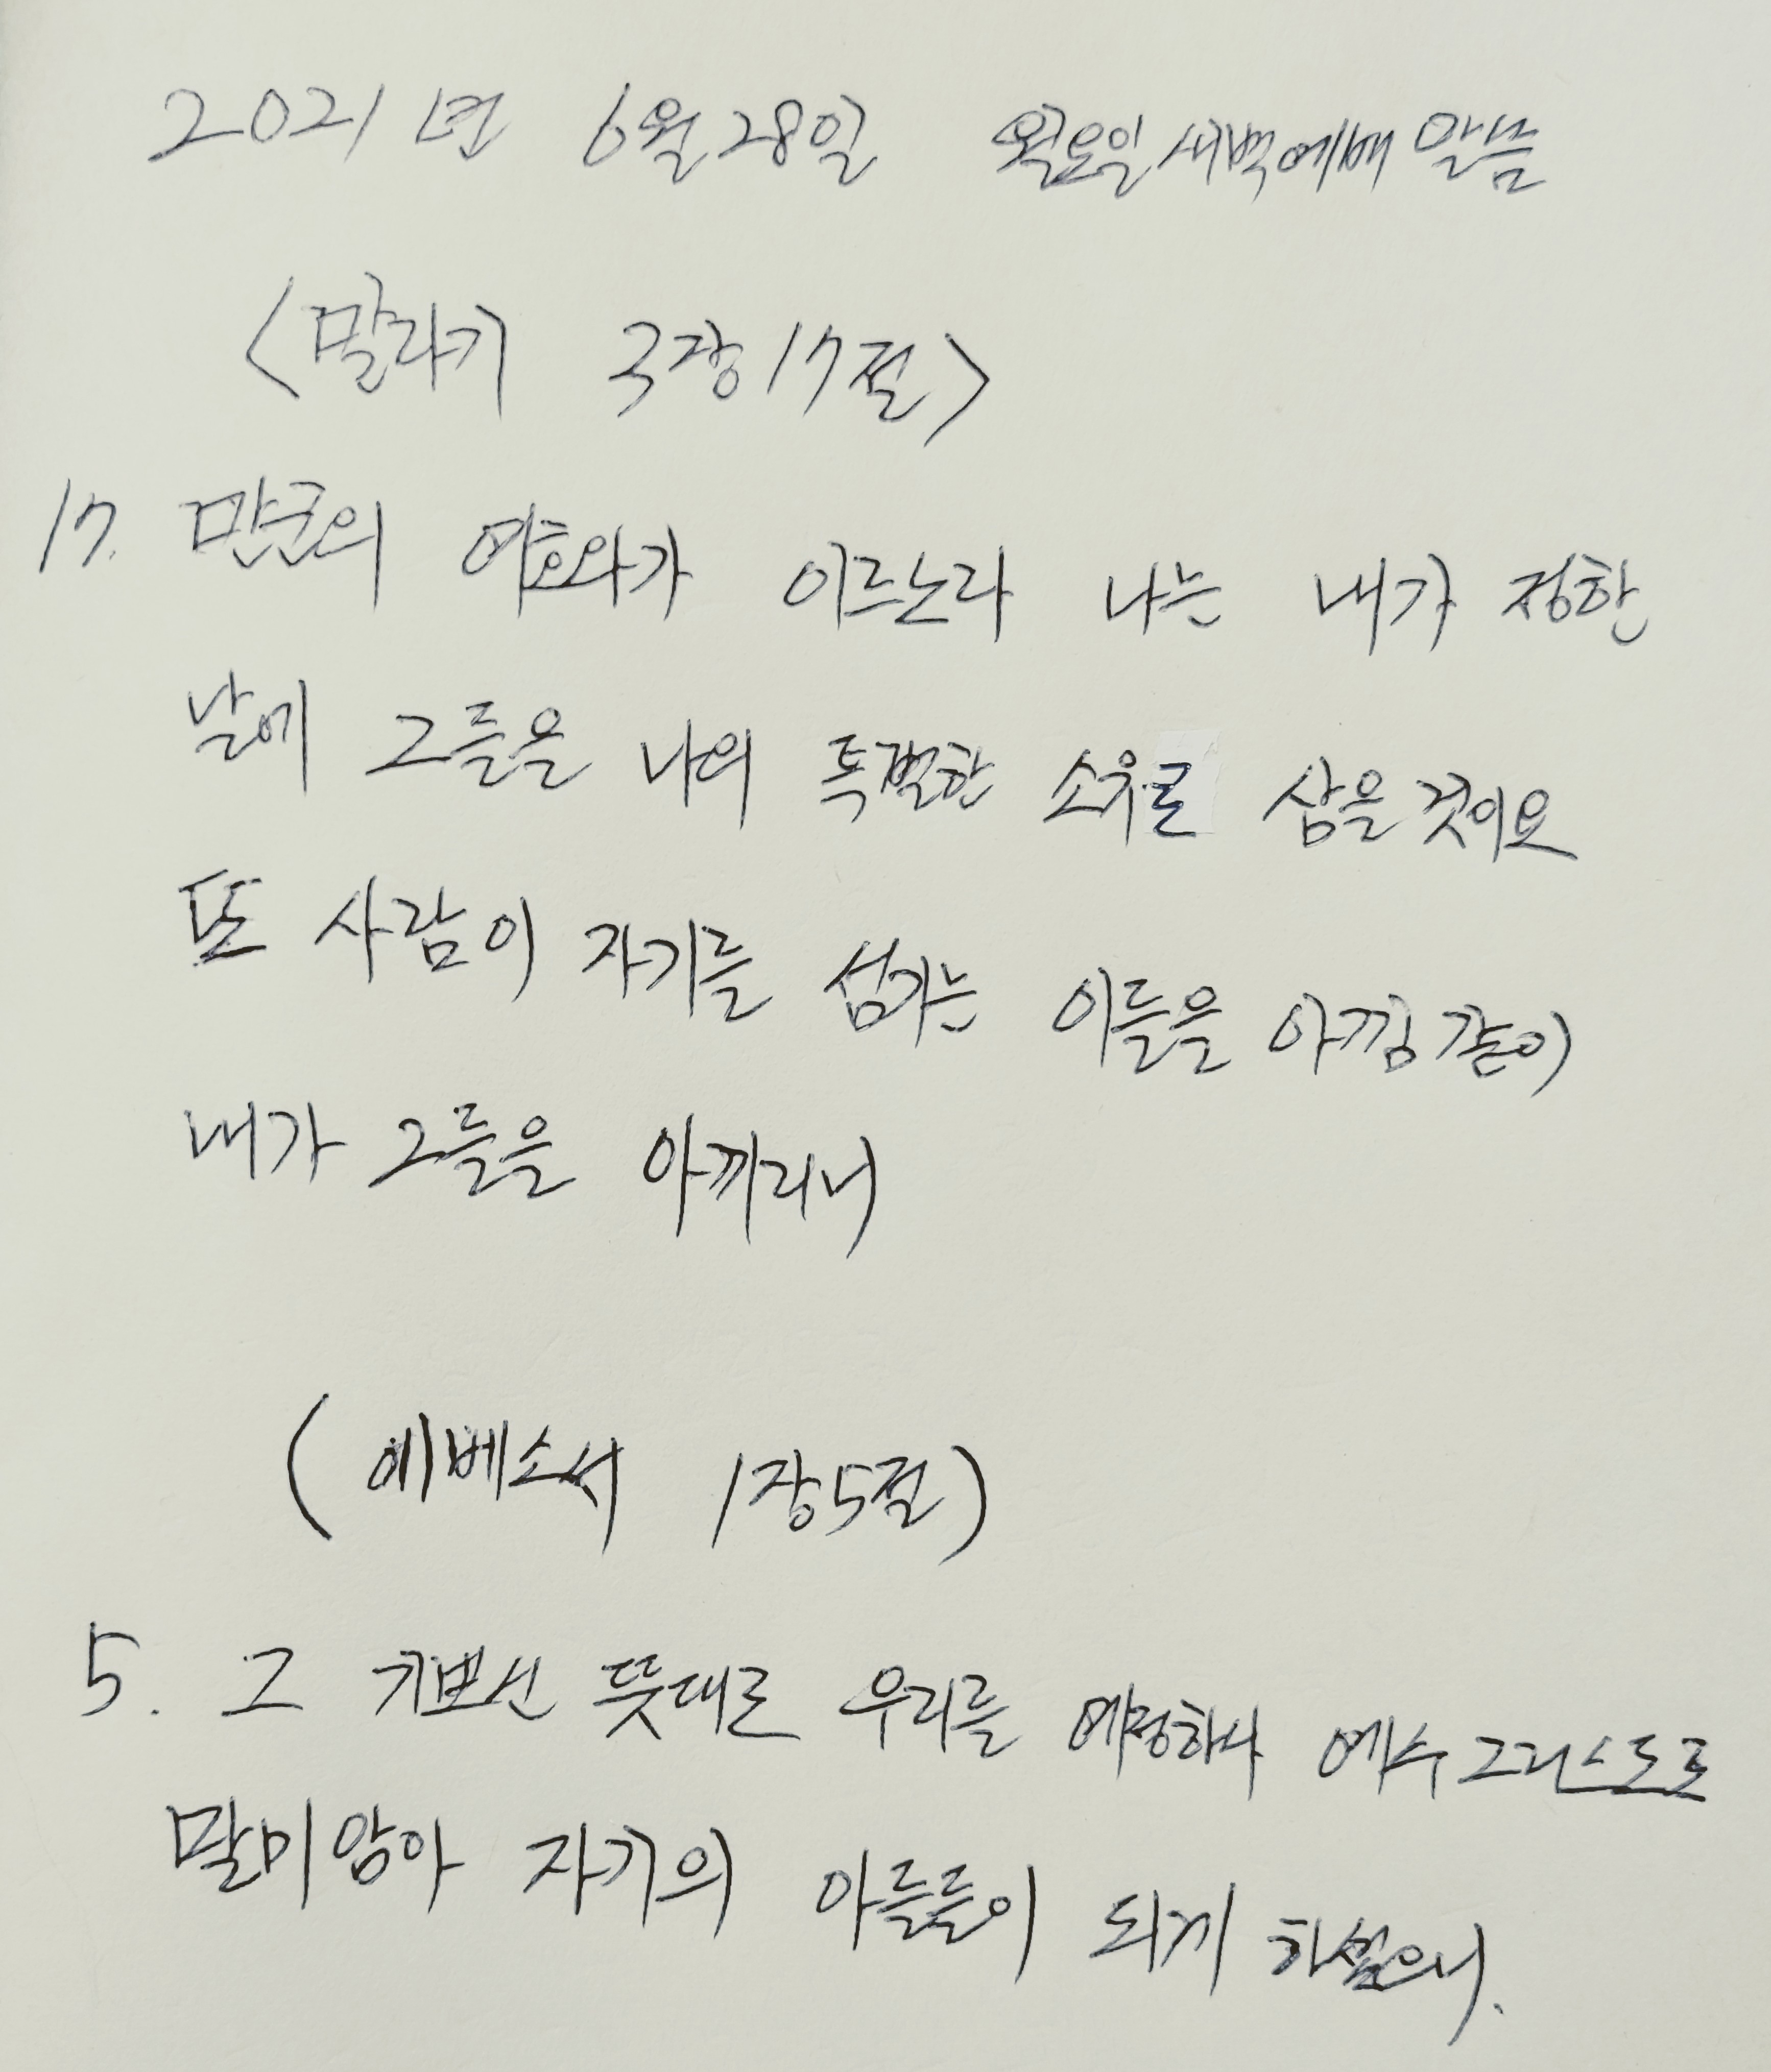 2021년 6월 28일 월요일 새벽예배 말씀
<말라기 3장 17절>
17. 만군의 여호와가 이르노라 나는 내가 정한
날에 그들을 나의 특별한 소유로 삼을 것이요
또 사람이 자기를 섬기는 아들을 아낌 같이
내가 그들을 아끼리니
(에베소서 1장 5절)
5. 그 기쁘신 뜻대로 우리를 예정하사 예수 그리스도로
말미암아 자기의 아들들이 되게 하셨으니.